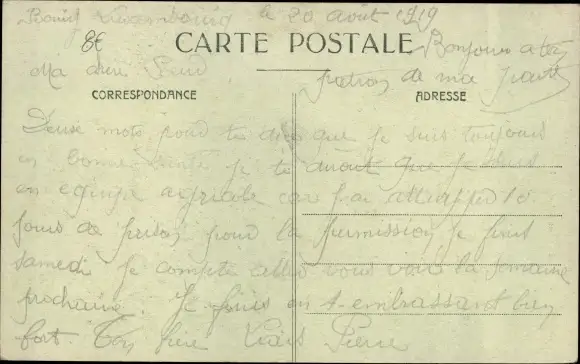 le 20 août 1919
8E
CARTE POSTALE
Bonjour à ton
patron de ma part
Ma chère
CORRESPONDANCE
ADRESSE
Deux mots pour te dire que je suis toujours
en bonne santé je te dirait que je suis
en car j'ai attrapper 10
jours de prison pour la permission je fini
samedi je compte aller vous voir la semaine
prochaine. Je finis en t-embrassant bien
fort. Ton Pierre